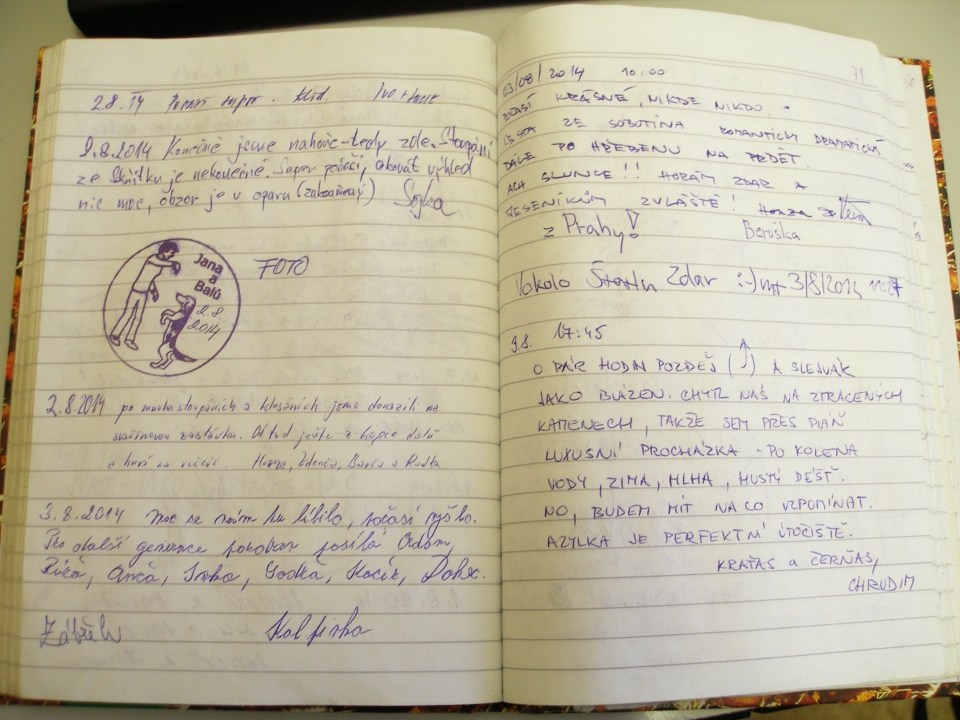 2.8.14 Počasí supr. Klid. Ivo +
2.8.2014 Konečně jsme nahoře - tedy zde. Stoupání
ze je nekonečné. Super počasí, akorát výhled
nic moc, obzor je v oparu (zakouřený) Sojka
Jana
a
Balů
2.8.
2014
FOTO
2.8.2014 po mnoha stoupáních a klesáních jsme dorazili na
svačinovou zastávku. Odtud ještě z kopce dolů
a hurá na večeři. Honza, Zdenda, Barča a Radka
3.8.2014 Moc se nám tu líbilo, počasí vyšlo.
Pro další generace posílá Adam,
Anča, Kocik,
Zábřeh
03/08/2014 10:00
71
POČASÍ KRÁSNÉ, NIKDE NIKDO.
CESTA ZE SOBOTÍNA ROMANTICKY DRAMATICKÁ
DÁLE PO HŘEBENU NA PRDĚT.
ACH SLUNCE!! HORÁM ZDAR A
JESENÍKŮM ZVLÁŠTĚ! Honza
z Prahy! Beruška
Vokolo Zdar :-) 3/8/2014 11:27
3.8. 17:45
O PÁR HODIN POZDĚJ (↑) A SLEJVÁK
JAKO BLÁZEN. CHYTL NÁS NA ZTRACENÝCH
KAMENECH, TAKŽE SEM PŘES PLÁŇ
LUXUSNÍ PROCHÁZKA - PO KOLENA
VODY, ZIMA, MLHA, HUSTÝ DÉŠŤ.
NO, BUDEM MÍT NA CO VZPOMÍNAT.
AZYLKA JE PERFEKTNÍ ÚTOČIŠTĚ.
KRAŤAS a ČERŇAS,
CHRUDIM